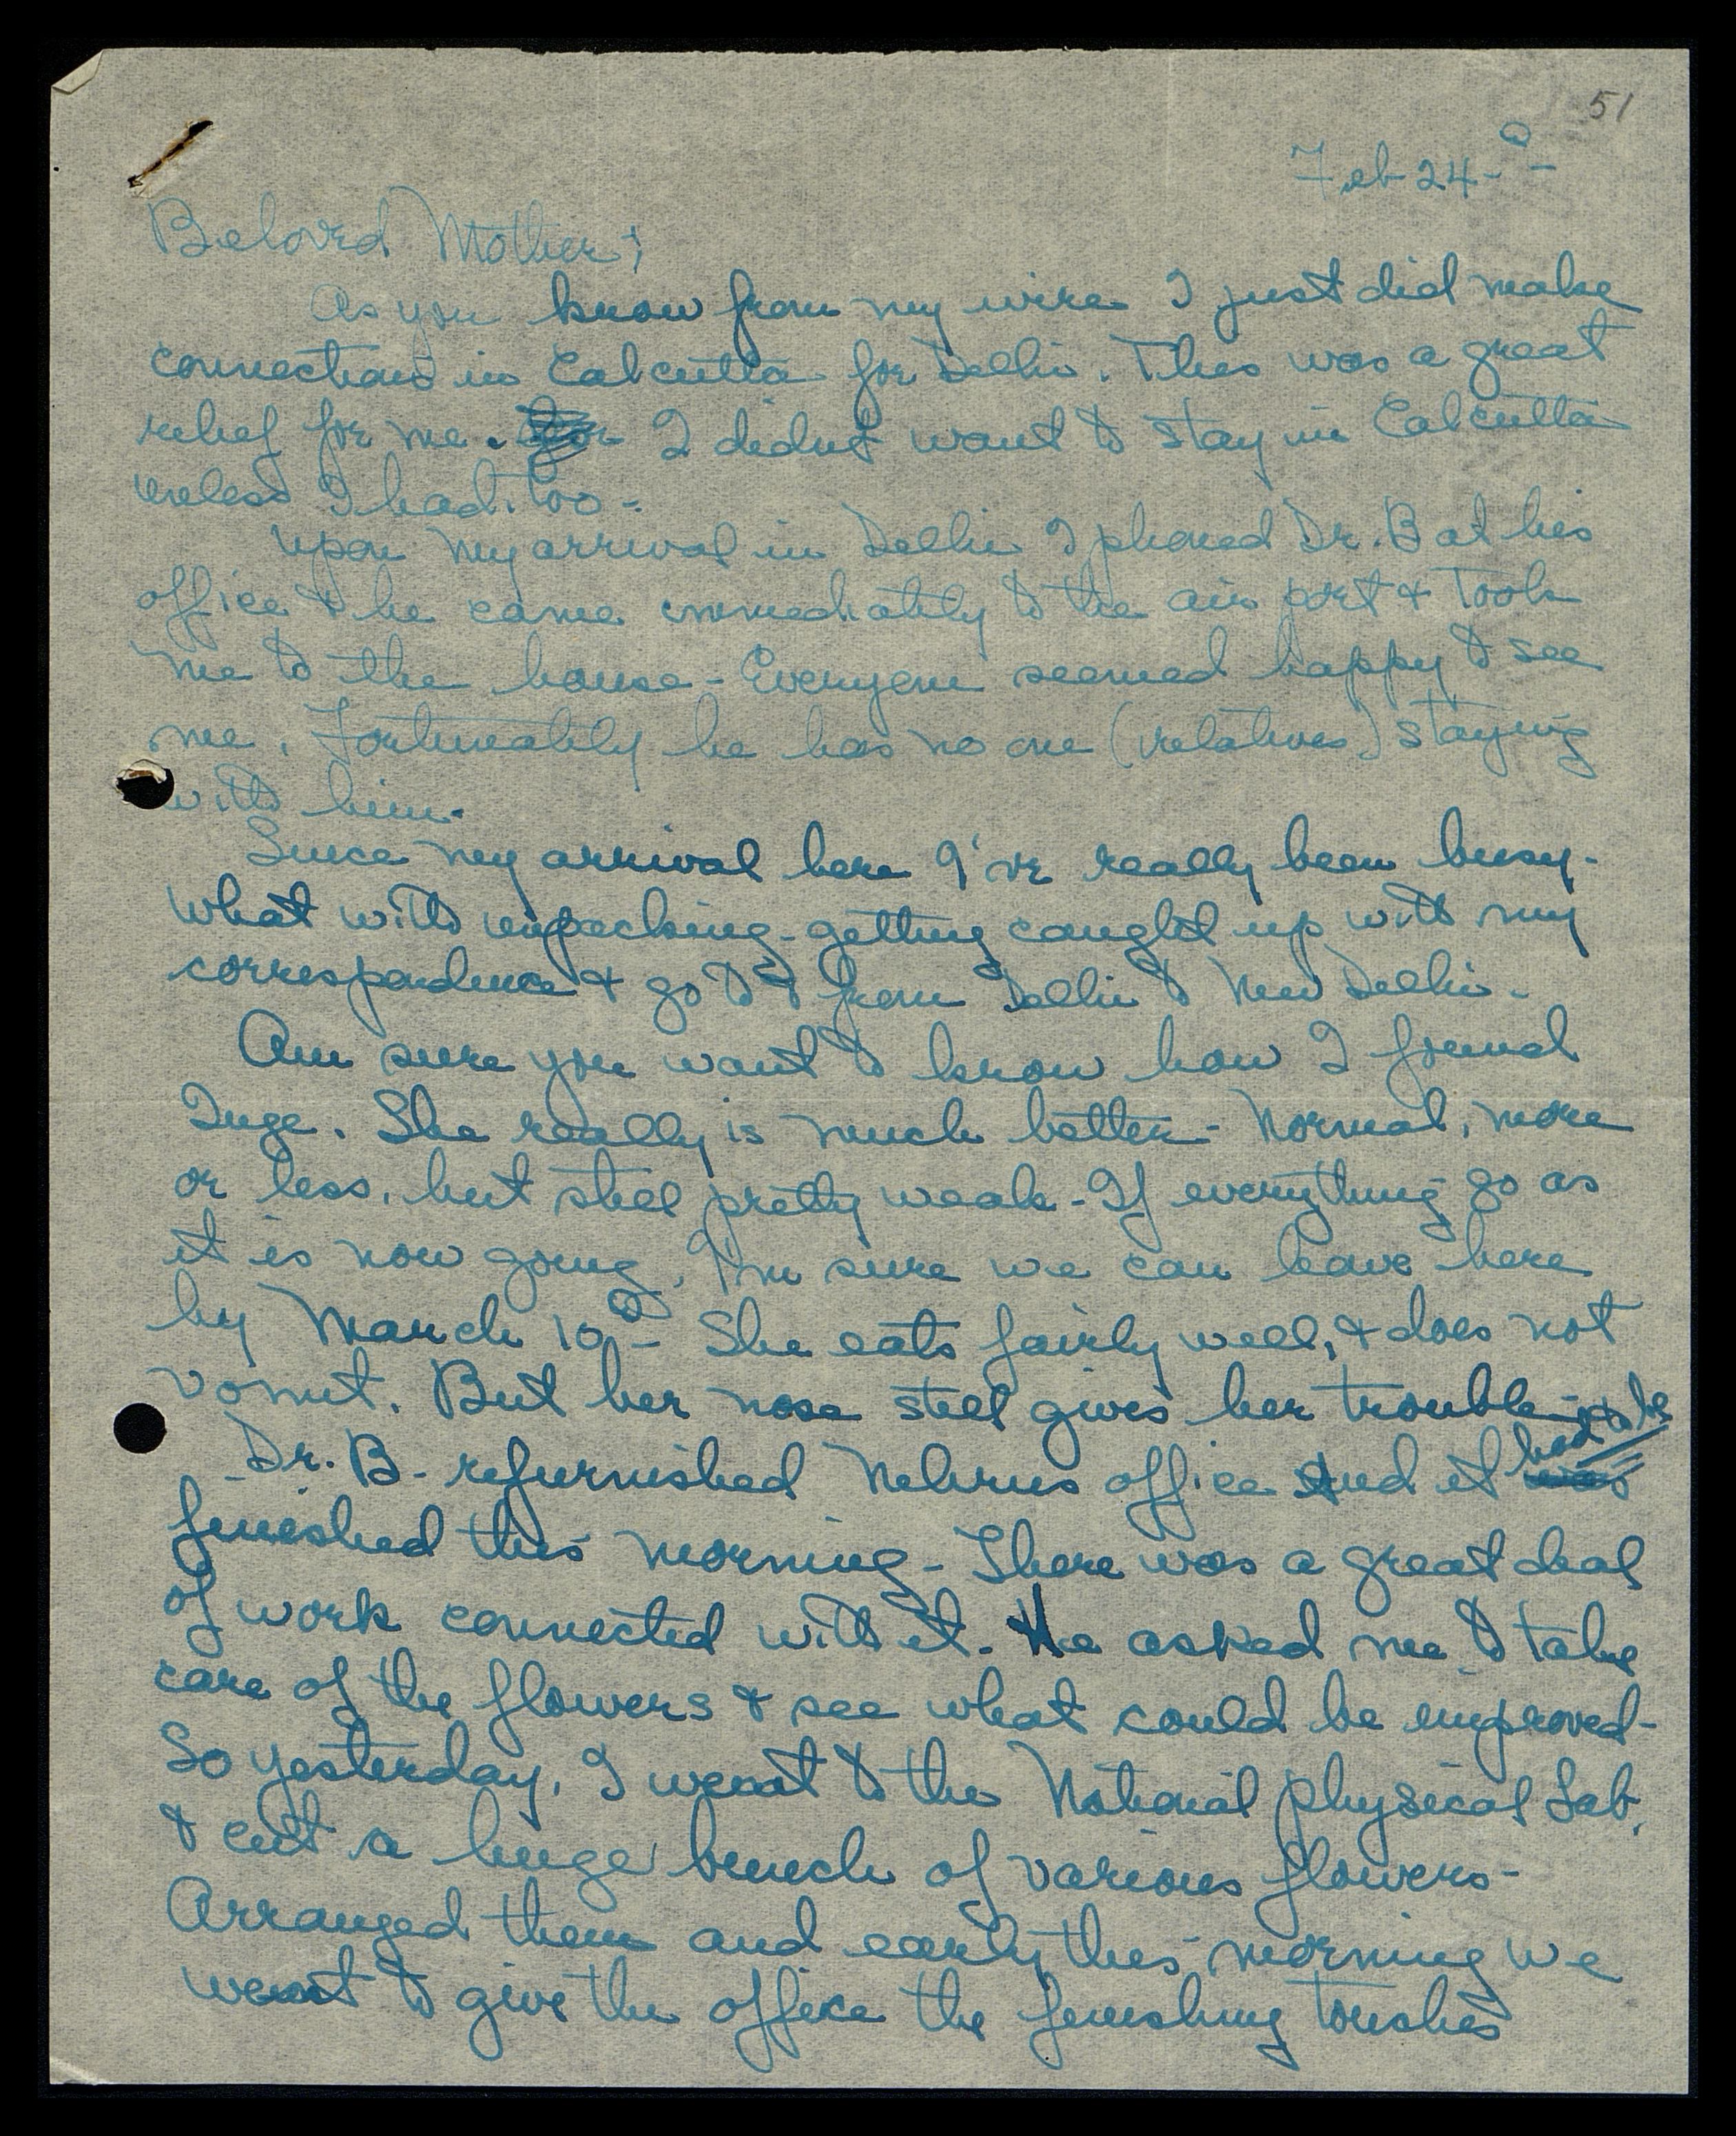 51
Feb 24-
Beloved Mother;
As you know from my wire I just did make
connections in Calcutta for Delhi. This was a great
relief for me. I didnt want to stay in Calcutta
unless I had. too -
Upon my arrival in Delhi I phoned Dr. B at his
office & he came immediately to the air port & took
me to the house - Everyone seemed happy to see
me. Fortunately he has no one (relatives) staying
with him.
Since my arrival here I've really been busy -
What with unpacking - getting caught up with my
correspondence & go to & from Delhi to New Delhi -
Am sure you want to know how I found
Inge. She really is much better - Normal, more
or less, but still pretty weak - If everything go as
it is now going, I'm sure we can leave here
by March 10th - She eats fairly well, & does not
vomit. But her nose still gives her trouble -
Dr. B - refurnished Nehrus office and it had to be
finished this morning - There was a great deal
of work connected with it. He asked me to take
care of the flowers & see what could be improved -
So yesterday, I went to the National Physical Lab,
& cut a huge bunch of various flowers -
Arranged them and early this morning we
went to give the office the finishing touches